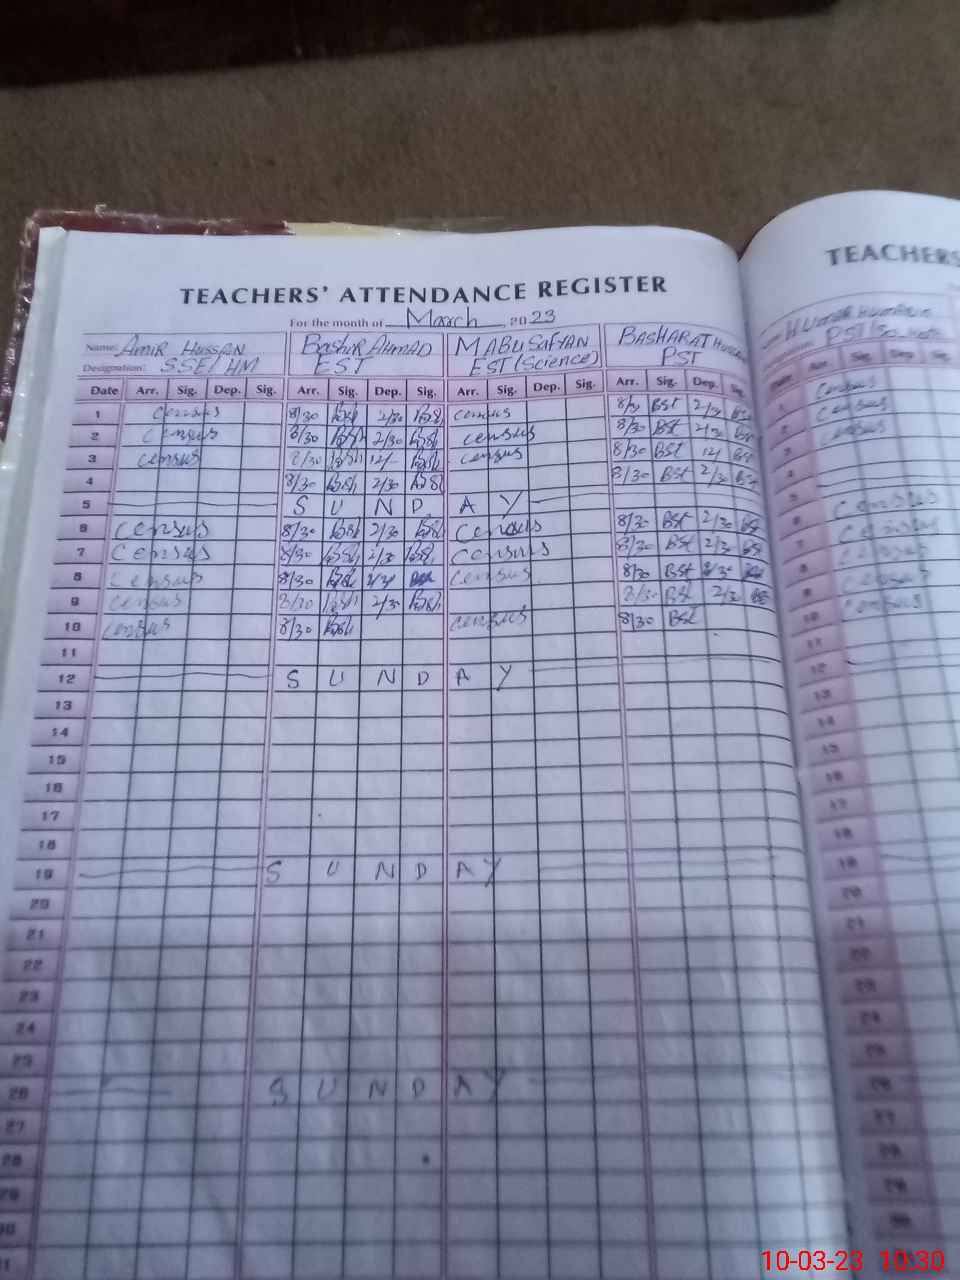 TEACHERS' ATTENDANCE REGISTER
For the month of March, 2023
Name: AMIR HUSSAIN BASHIR AHMAD M ABU SAFYAN BASHARAT
Designation: SSE/HM EST EST (Science) PST
Date Arr. Sig. Dep. Sig. Arr. Sig. Dep. Sig. Arr. Sig. Dep. Sig. Arr. Sig. Dep. Sig.
1 census 8/30 Bsh 2/30 Bsh census 8/30 BSt 2/30 BSt
2 census 8/30 Bsh 2/30 Bsh census 8/30 BSt 2/30 BSt
3 census 8/30 Bsh 12/- Bsh census 8/30 BSt 12/ BSt
4 8/30 Bsh 2/30 Bsh 8/30 BSt 2/30 BSt
5 S U N D A Y
6 Census 8/30 Bsh 2/30 Bsh Census 8/30 BSt 2/30 BSt
7 Census 8/30 Bsh 2/30 Bsh Census 8/30 BSt 2/30 BSt
8 Census 8/30 Bsh 2/30 Census 8/30 BSt 2/30
9 Census 8/30 Bsh 2/30 Bsh 8/30 BSt 2/30
10 Census 8/30 Bsh Census 8/30 BSt
11
12 S U N D A Y
13
14
15
16
17
18
19 S U N D A Y
20
21
22
23
24
25
26 S U N D A Y
27
28
29
30
TEACHERS
PST
Date Arr. Sig. Dep. Sig.
1 Census
2 Census
3 Census
4
5
6 Census
7 Census
8 Census
9 Census
10 Census
11
12
13
14
15
16
17
18
19
20
21
22
23
24
25
26
27
28
29
30
10-03-23 10:30